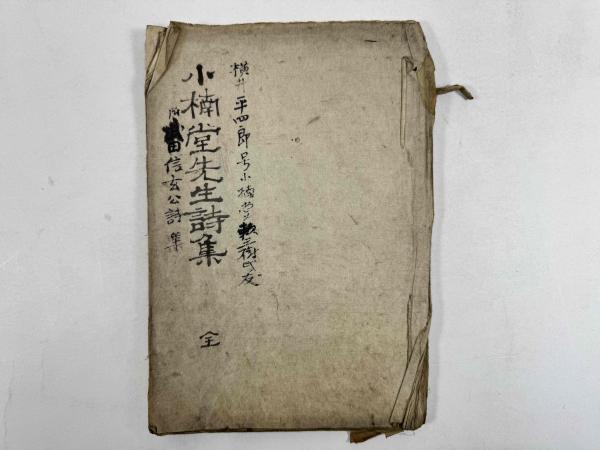 横井平四郎号小楠堂
小楠堂先生詩集 全
附 武田信玄公詩集